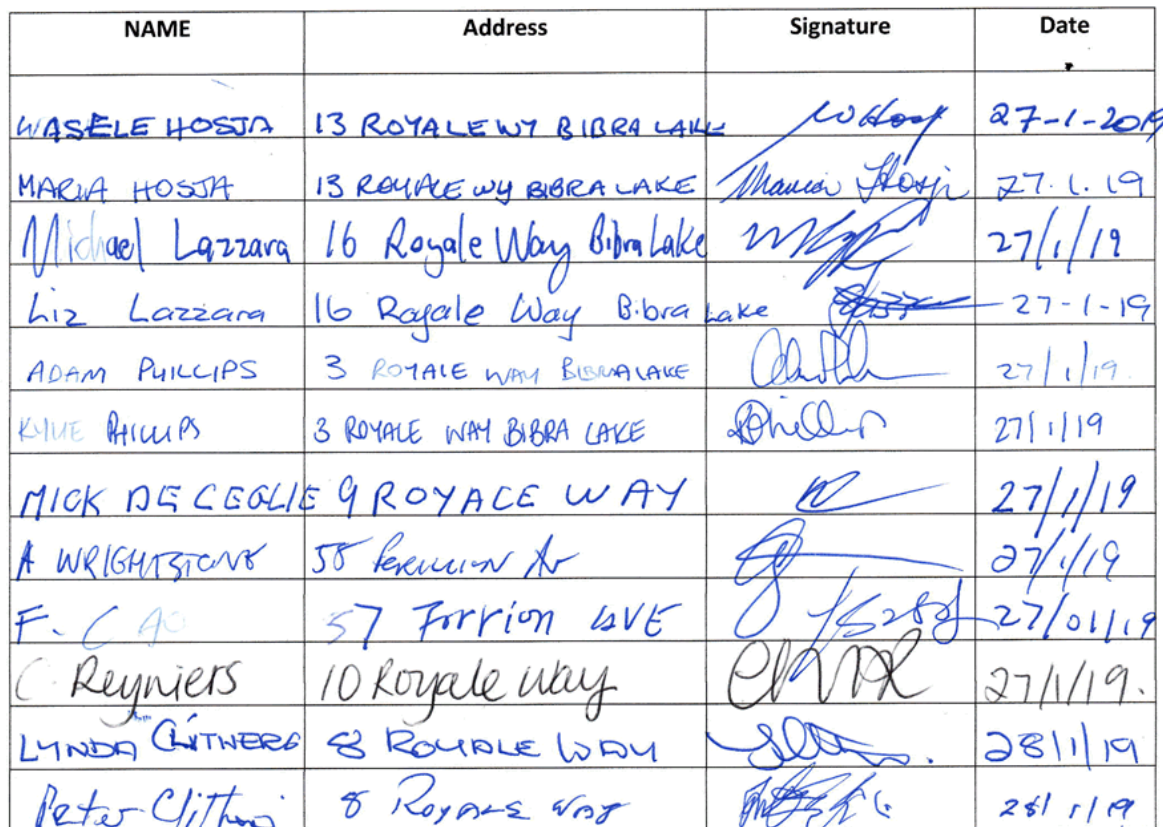 NAME Address Signature Date
WASELE HOSJA 13 ROYALE WY BIBRA LAKE W Hosj 27-1-2019
MARIA HOSJA 13 ROYALE WY BIBRA LAKE Maria Hosja 27.1.19
Michael Lazzara 16 Royale Way Bibra Lake 27/1/19
Liz Lazzara 16 Royale Way Bibra Lake 27-1-19
ADAM PHILLIPS 3 ROYALE WAY BIBRA LAKE 27/1/19.
KYLIE PHILLIPS 3 ROYALE WAY BIBRA LAKE 27/1/19
MICK DE CEGLIE 9 ROYALE WAY 27/1/19
A WRIGHTSTONE 58 27/1/19
F. CAO 57 AVE 27/01/19
C Reyniers 10 Royale Way 27/1/19.
LYNDA CLITHERO 8 ROYALE WAY 28/1/19
Peter 8 ROYALE WAY 28/1/19